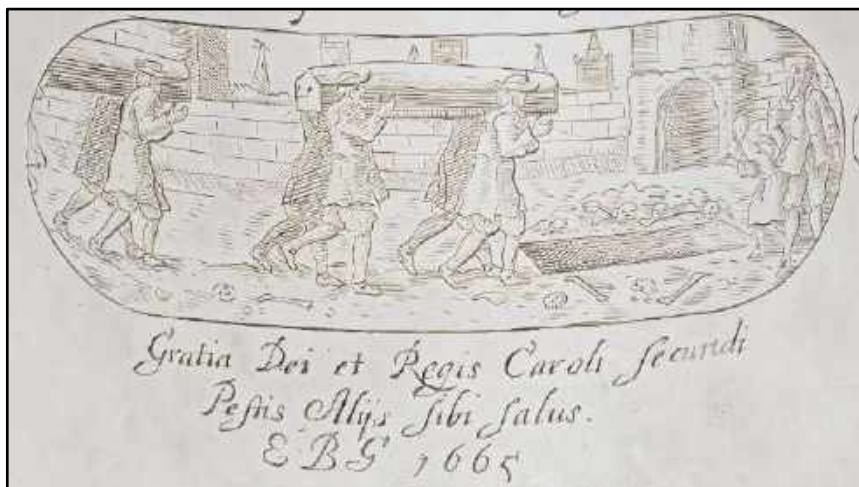 Gratia Dei et Regis Caroli secundi
Pestis Alijs sibi salus.
E B G 1665